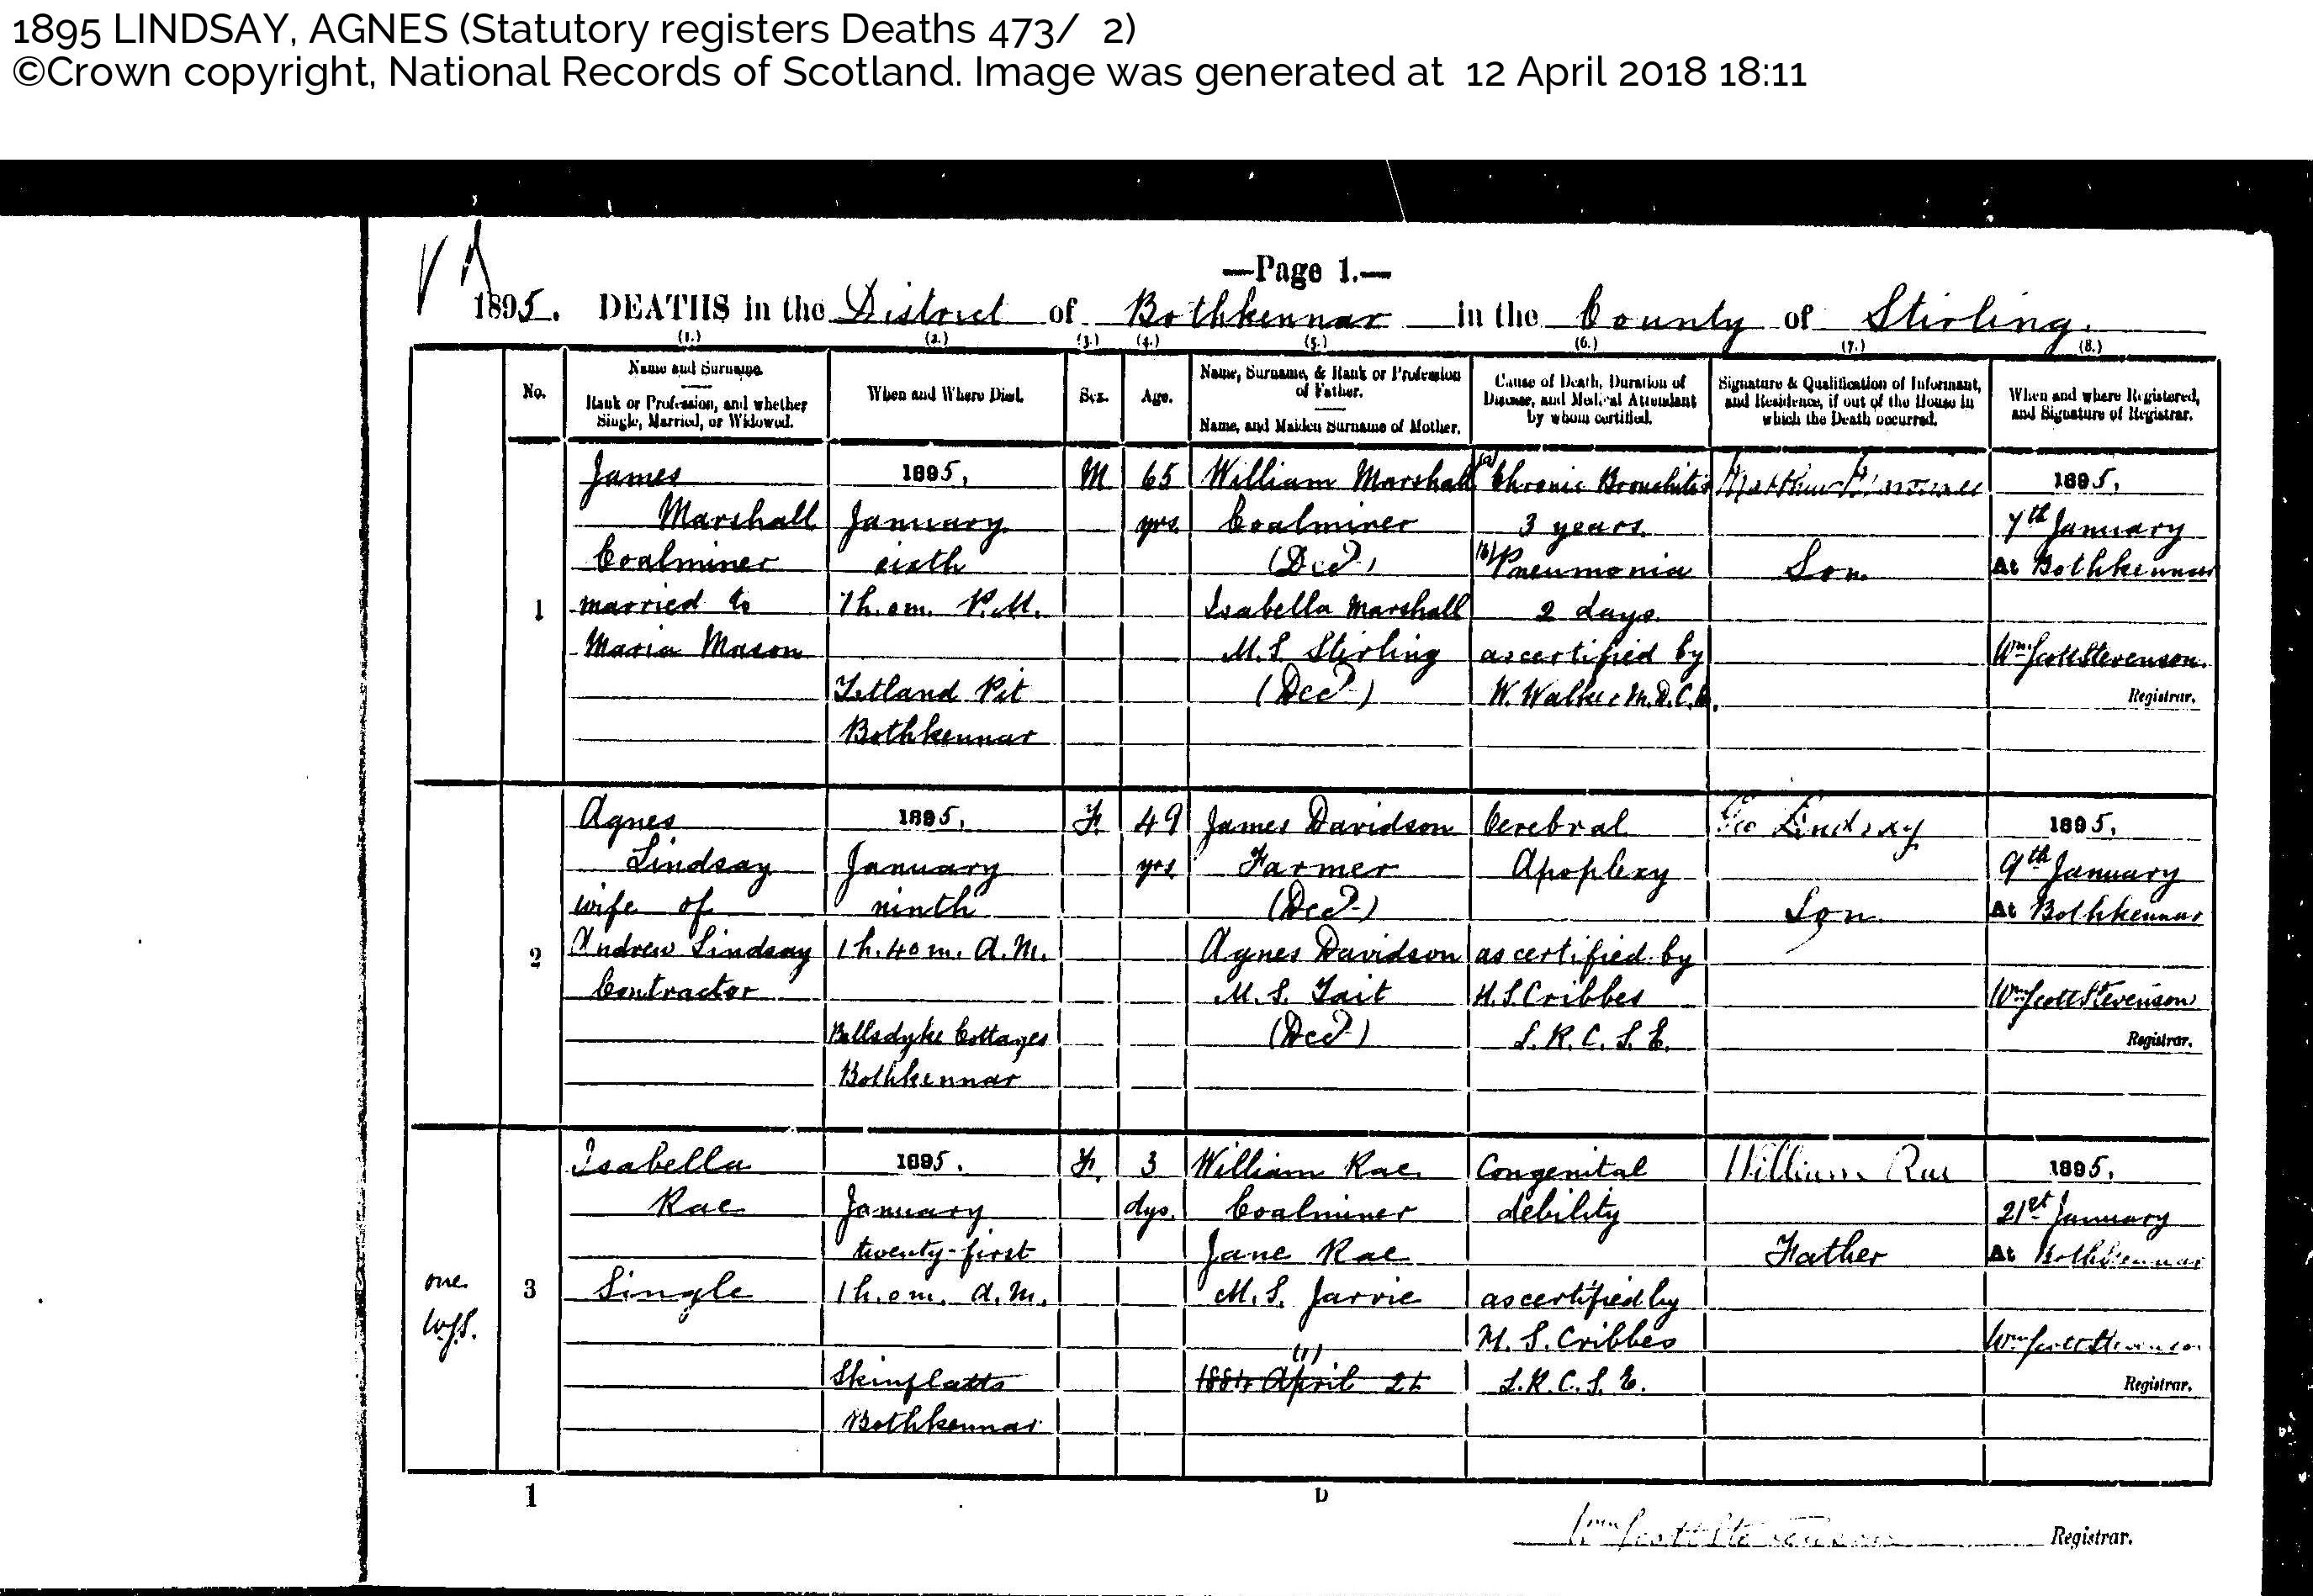 1895 LINDSAY, AGNES (Statutory registers Deaths 473/ 2)
©Crown copyright, National Records of Scotland. Image was generated at 12 April 2018 18:11
—Page 1.—
1895. DEATHS in the District of Bothkennar in the County of Stirling.
(1.) (2.) (3.) (4.) (5.) (6.) (7.) (8.)
No.
Name and Surname.
Rank or Profession, and whether
Single, Married, or Widowed.
When and Where Died.
Sex.
Age.
Name, Surname, & Rank or Profession
of Father.
Name, and Maiden Surname of Mother.
Cause of Death, Duration of
Disease, and Medical Attendant
by whom certified.
Signature & Qualification of Informant,
and Residence, if out of the House in
which the Death occurred.
When and where Registered,
and Signature of Registrar.
1
James
Marshall
Coalminer
married to
Maria Mason
1895,
January
sixth
7h. 0m. P.M.
Zetland Pit
Bothkennar
M
65
yrs.
William Marshall
Coalminer
(Decd.)
Isabella Marshall
M.S. Stirling
(Decd.)
(a) Chronic Bronchitis
3 years.
(b) Pneumonia
2 days.
as certified by
W. Walker M.D.C.M.
Son
1895,
7th January
At Bothkennar
Wm Scott Stevenson.
Registrar.
2
Agnes
Lindsay
wife of
Andrew Lindsay
Contractor
1895,
January
ninth
1h. 40m. A.M.
Bellsdyke Cottages
Bothkennar
F.
49
yrs.
James Davidson
Farmer
(Decd.)
Agnes Davidson
M.S. Tait
(Decd.)
Cerebral
Apoplexy
as certified by
H.S. Cribbes
L.R.C.S.E.
Geo Lindsay
Son.
1895,
9th January
At Bothkennar
Wm Scott Stevenson
Registrar.
one
W.S.S.
3
Isabella
Rae
Single
1895.
January
twenty-first
1h. 0m. A.M.
Skinflatts
Bothkennar
F.
3
dys.
William Rae
Coalminer
Jane Rae
M.S. Jarvie
(1)
April
Congenital
debility
as certified by
H.S. Cribbes
L.R.C.S.E.
William Rae
Father
1895,
21st January
At Bothkennar
Wm Scott Stevenson
Registrar.
1
D
Wm Scott Stevenson Registrar.